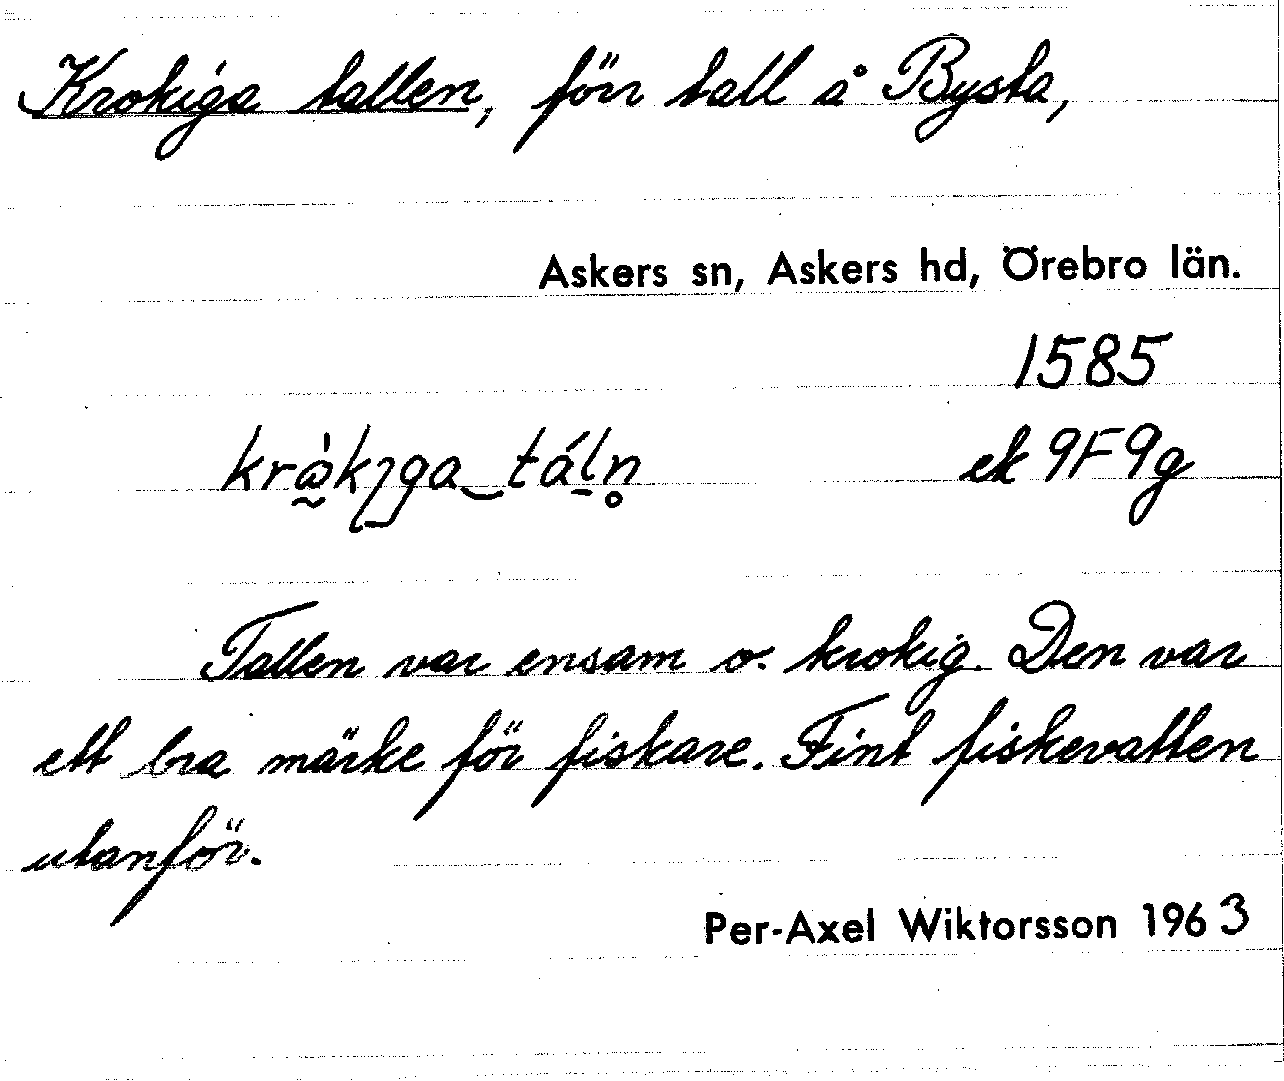 Krokiga tallen, förr tall å Bysta,
Askers sn, Askers hd, Örebro län.
1585
ek 9F9g
Tallen var ensam o. krokig. Den var
ett bra märke för fiskare. Fint fiskevatten
utanför.
Per-Axel Wiktorsson 1963